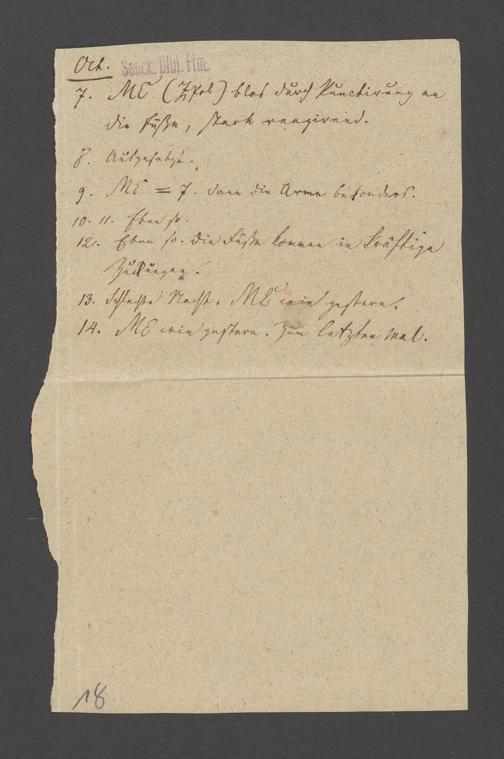 Oct.
Senck. Bibl. Ffm.
7. ME (Zpol) blos durch Punctirung an
die Füße, stark reagirend.
8. Ausgesetzt.
9. ME = 7. dann die Arme besonders.
10. 11. Eben so.
12. Eben so. die Füße kommen in kräftige
Zuckungen.
13. Schlechte Nacht. ME wie gestern.
14. ME wie gestern. Zum letzten Mal.
18